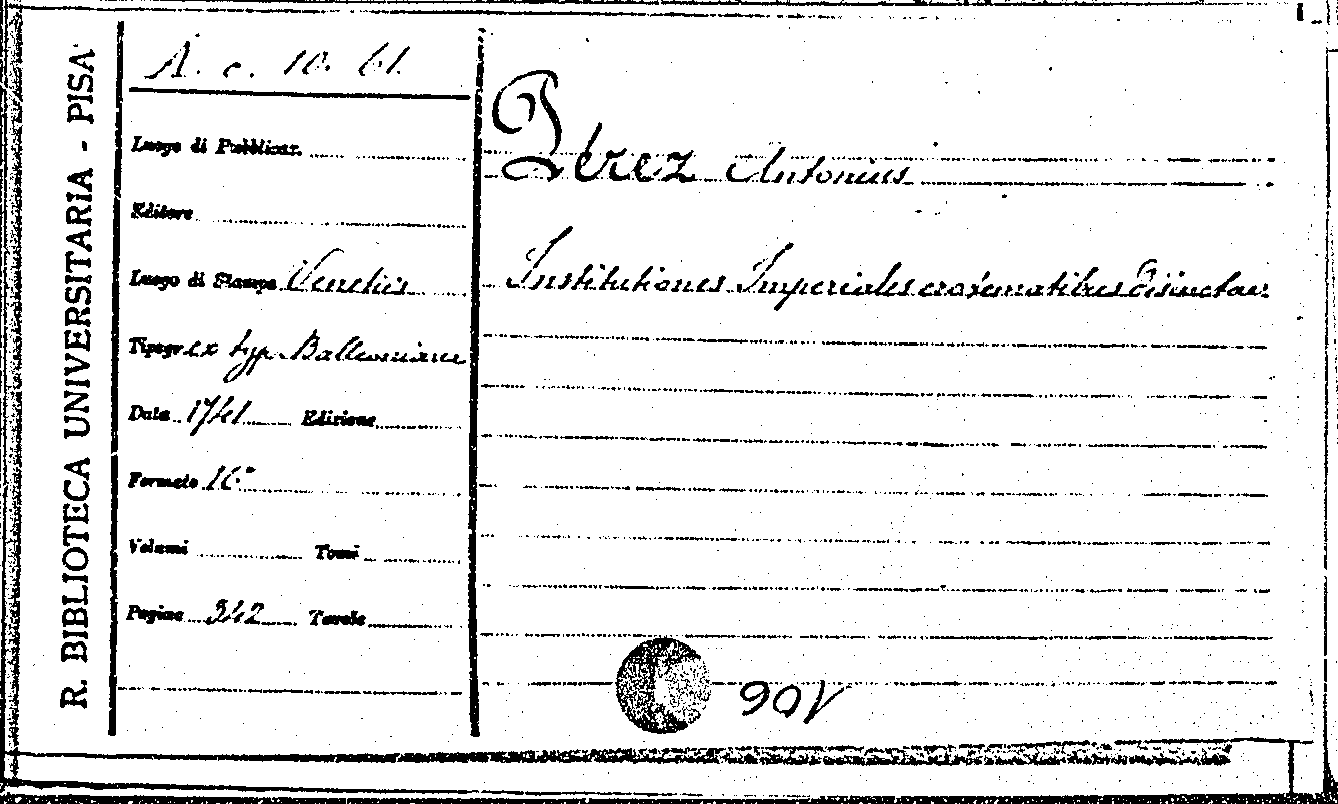 R. BIBLIOTECA UNIVERSITARIA - PISA
A. c. 10. 61.
Luogo di Pubblicaz.
Editore
Luogo di Stampa Venetiis
Tipogr. ex typ. Balleoniana
Data 1741 Edizione
Formato 16°
Volumi Tomi
Pagine 342 Tavole
Pérez Antonius
Institutiones Imperiales erotematibus distinctae